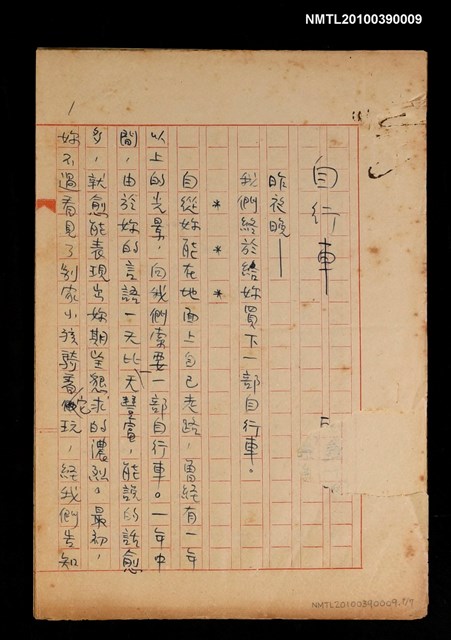 NMTL20100390009
1
自行車
昨夜晚——
我們終於給妳買下一部自行車。
* * *
自從妳能在地面上自己走路,曾經有一年
以上的光景,向我們索要一部自行車。一年中
間,由於妳的言語一天比一天豐富,能說的話愈
多,就愈能表現出妳期望懇求的濃烈。最初,
妳不過看見了別家小孩騎着它玩,經我們告知
NMTL20100390009.1/9